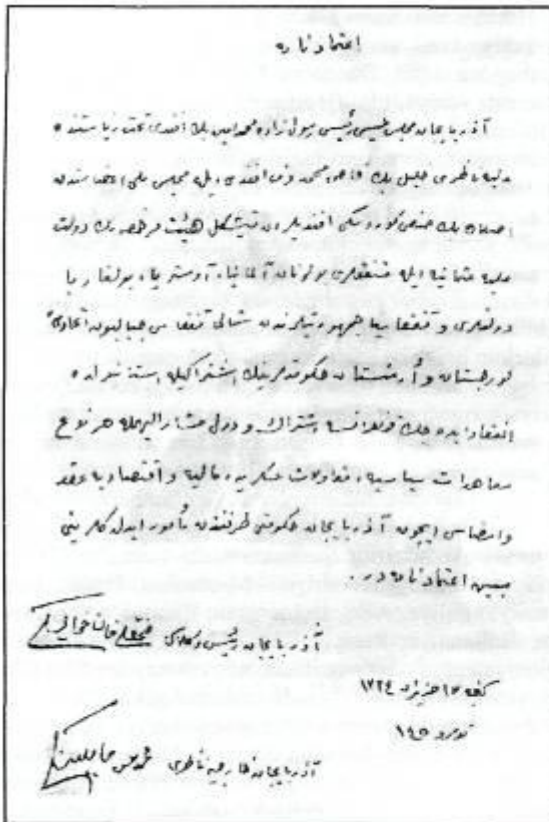 اعتمادنامه
آذربایجان مجلس ملیسی رئیسی رسول زاده محمد امین بك افندی تحت ریاستنده
عدلیه ناظری خلیل بك خاص محمدوف افندی ایله مجلس ملی اعضاسندن
اصلان بك صفی كوردسکی افندیلردن متشكل هیئت مرخصه نك دولت
علیه عثمانیه ایله متفقلری بولونان آلمانیا، آوستریا، بولغاریا
دولتلری و قفقاسیا جمهوریتلرندن شمالی قفقاس جبالیون اتحادی
گورجستان و ارمنستان حکومتلرینك اشتراکیله استانبولده
انعقاد ایده جك قونفرانسه اشتراك و دول مشار الیهمله هر نوع
معاهدات سیاسیه، مقاولات عسکریه، مالیه و اقتصادیه عقد
و امضاسی ایچون آذربایجان حکومتی طرفندن مأمور ایدلدکلرینی
مبین اعتمادنامه در
آذربایجان رئیس وکلاسی فتحعلی خان خویسکی
گنجه ١٣ حزیران ١٣٣٤
نومرو ١٤٥
آذربایجان خارجیه ناظری محمد حسن حاجینسکی